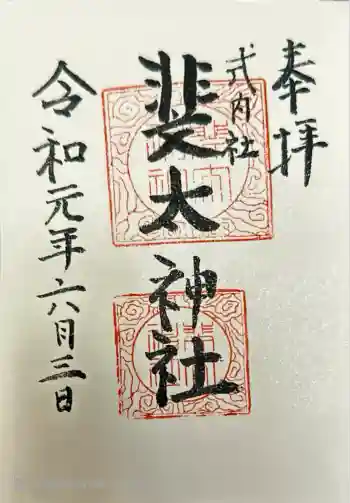 奉拝
式内社
斐太神社
令和元年六月三日